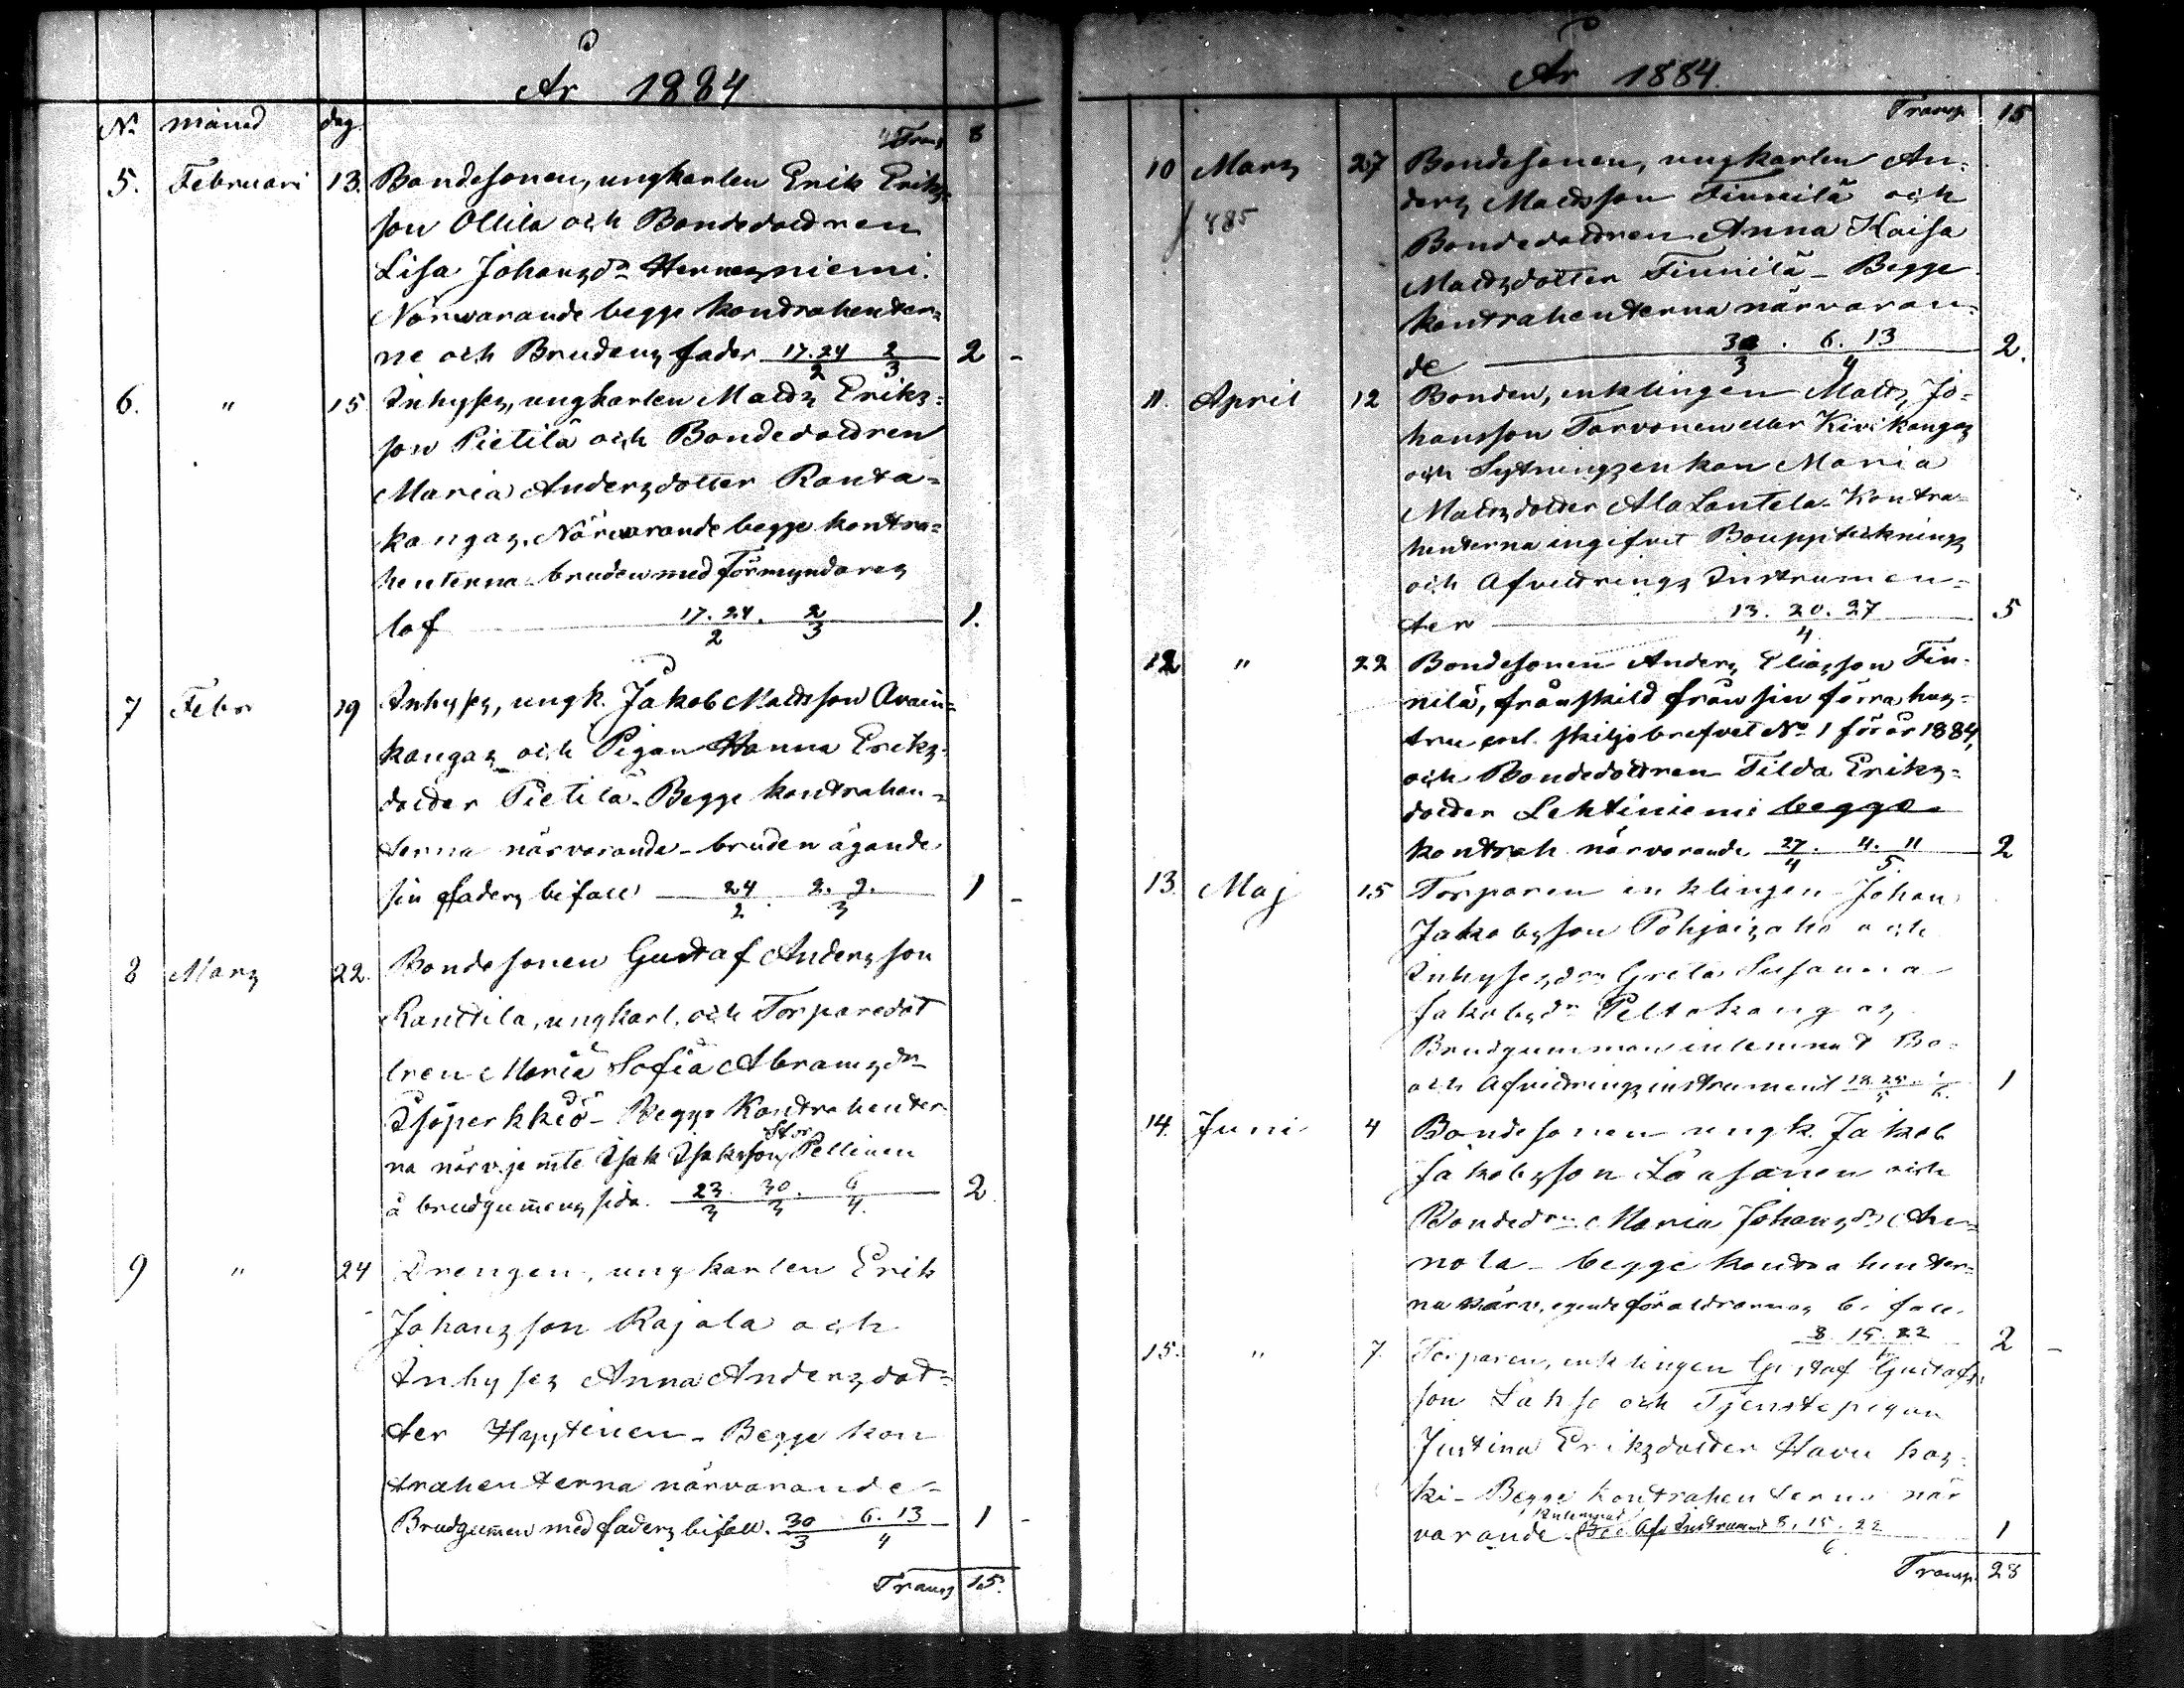 År 1884
No månad dag
Transp 8
5. Februari 13. Bondesonen, ungkarlen Erik Eriks=
son Ollila och Bondedottren
Lisa Johansdr Hernesniemi.
Närvarande begge kontrahenter=
ne och Brudens fader 17.24/2 2/3 2 -
6. " 15 Inhyses, ungkarlen Matts Eriks=
son Pietilä och Bondedottren
Maria Andersdotter Ranta=
kangas. Närvarande begge kontra=
henterna bruden med förmyndares
lof 17.24./2 2/3 1.
7 Febr 19 Inhyses, ungk. Jakob Mattsson Avain=
kangas och Pigan Hanna Eriks=
dotter Pietilä. Begge kontrahen=
terna närvarande - bruden ägande
sin faders bifall 24/2. 2. 9./3 1 -
8 Mars 22. Bondesonen Gustaf Andersson
Ranttila, ungkarl, och Torparedot
tren Maria Sofia Abramsdr
Isoperkkiö - Begge Kontrahenter
na närv. jemte Isak Isaksson Stor Pellinen
å brudgum̄ens sida. 23/3 30./3 6/4. 2.
9 " 24 Drengen, ungkarlen Erik
Johansson Rajala och
Inhyses Anna Andersdot=
ter Hyytinen - Begge kon
trahenterna närvarande -
Brudgum̄en med faders bifall. 30/3 6. 13/4 1 -
Transp 15.
År 1884.
Transp 15
10 Mars 27 Bondesonen, ungkarlen An=
ders Mattsson Finnilä och
485
Bondedottren Anna Kaisa
Mattsdotter Finnilä - Begge
kontrahenterna närvaran=
de 30/3 . 6. 13/4 2.
11. April 12 Bonden, enklingen Matts Jo=
hansson Torvonen eller Kivikangas
och Sytningsenkan Maria
Mattsdotter Ala Lantela. Kontra=
henterna ingifvit Bouppteknings
och Afvittrings Instrumen=
ter 13. 20. 27/4 5
12 " 22 Bondesonen Anders Eliasson Fin=
nilä, frånskild från sin förra hus=
tru enl. skiljobrefvet No 1 för år 1884,
och Bondedottren Tilda Eriks=
dotter Lehtiniemi begge
kontrah närvarande 27./4 4. 11/5. 2
13. Maj 15 Torparen enklingen Johan
Jakobsson Pohjoisaho och
Inhysesdr Greta Susanna
Jakobsdr Peltokangas
Brudgumman inlemnat Bo=
och Afvittringsinstrument 18.25./5 1/6. 1
14. Juni 4 Bondesonen ungk. Jakob
Jakobsson Laasanen och
Bondedr Maria Johansdr An=
nola - begge kontrahenter=
na närv. egande föräldrarnas bifall.
8 15. 22/6 2 -
15. " 7. Torparen, enklingen Gustaf Gustafs=
son Lakso och Tjenstepigan
Justina Eriksdotter Havukos=
ki - Begge kontrahenterna när
varande. Inlemnat Afv. Instrument 8. 15. 22/6. 1
Transp. 28